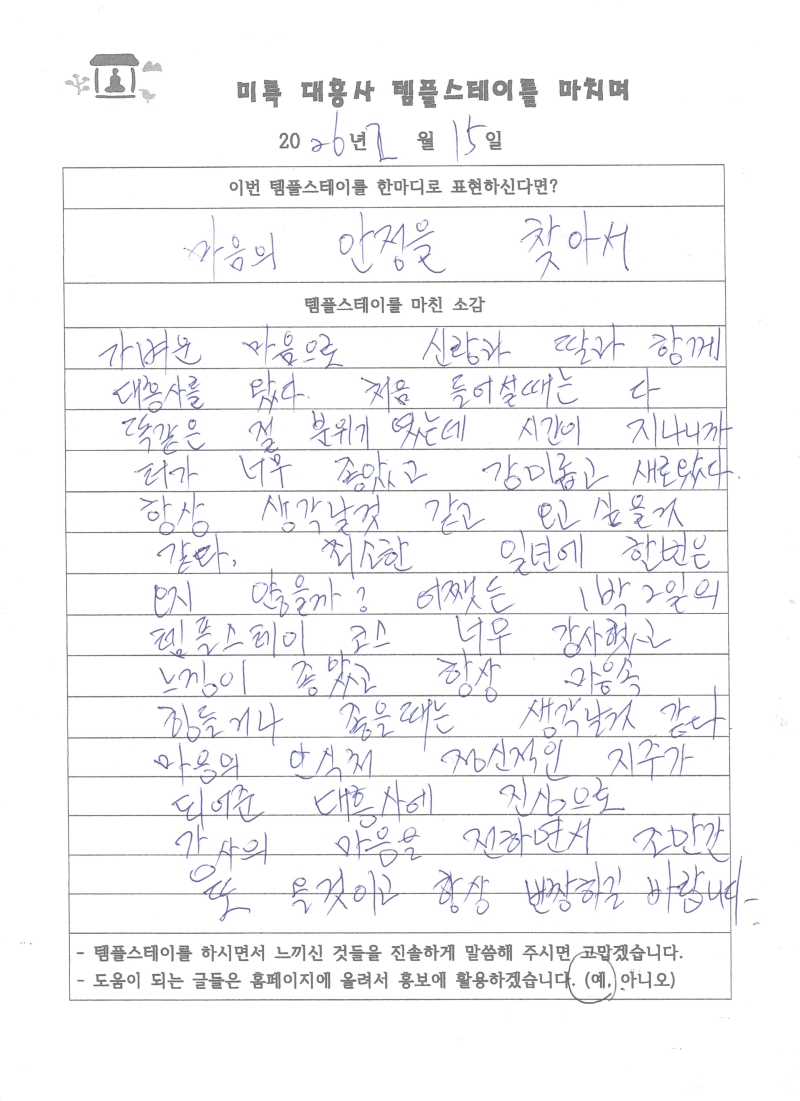 미륵 대흥사 템플스테이를 마치며
2026년 2월 15일
이번 템플스테이를 한마디로 표현하신다면?
마음의 안정을 찾아서
템플스테이를 마친 소감
가벼운 마음으로 신랑과 딸과 함께
대흥사를 왔다. 처음 들어설때는 다
똑같은 절 분위기 였는데 시간이 지나니까
터가 너무 좋았고 감미롭고 새로왔다.
항상 생각날것 같고 오고 싶을거
같다. 최소한 일년에 한번은
오지 않을까? 어쨋든 1박 2일의
템플스테이 코스 너무 감사했고
느낌이 좋았고 항상 마음속
힘들거나 좋을때는 생각날거 같다
마음의 안식처 정신적인 지주가
되어준 대흥사에 진심으로
감사의 마음을 전하면서 조만간
또 올것이고 항상 번창하길 바랍니다.
- 템플스테이를 하시면서 느끼신 것들을 진솔하게 말씀해 주시면 고맙겠습니다.
- 도움이 되는 글들은 홈페이지에 올려서 홍보에 활용하겠습니다. (예, 아니오)